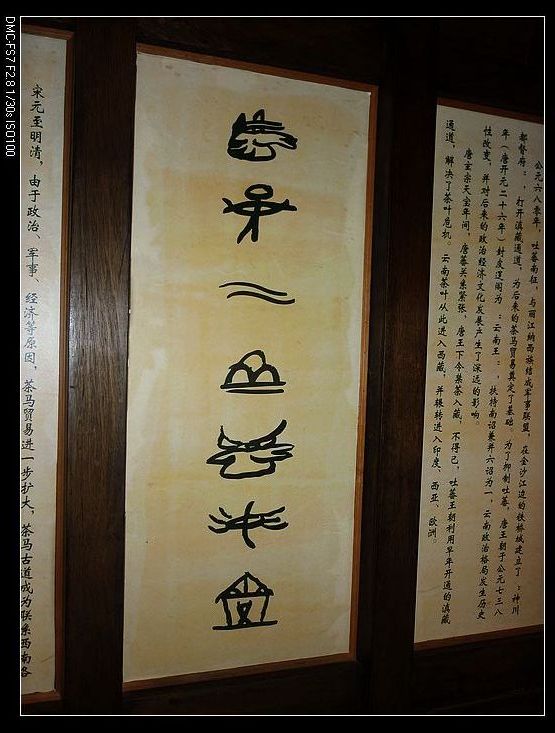 DMC-FS7 F2.8 1/30s ISO100
公元六八零年，吐蕃南征，与丽江纳西族结成军事联盟，在金沙江边的铁桥城建立了：神川
都督府：，打开滇藏通道，为后来的茶马贸易奠定了基础。为了抑制吐蕃，唐王朝于公元七三八
年（唐开元二十六年）封皮逻阁为：云南王：，扶持南诏兼并六诏为一，云南政治格局发生历史
性改变，并对后来的政治经济文化发展产生了深远的影响。
唐玄宗天宝年间，唐蕃关系紧张，唐王下令禁茶入藏，不得已，吐蕃王朝利用早年开通的滇藏
通道，解决了茶叶危机。云南茶叶从此进入西藏，并辗转进入印度、西亚、欧洲。
宋元至明清，由于政治、军事、经济等原因，茶马贸易进一步扩大，茶马古道成为联系西南各